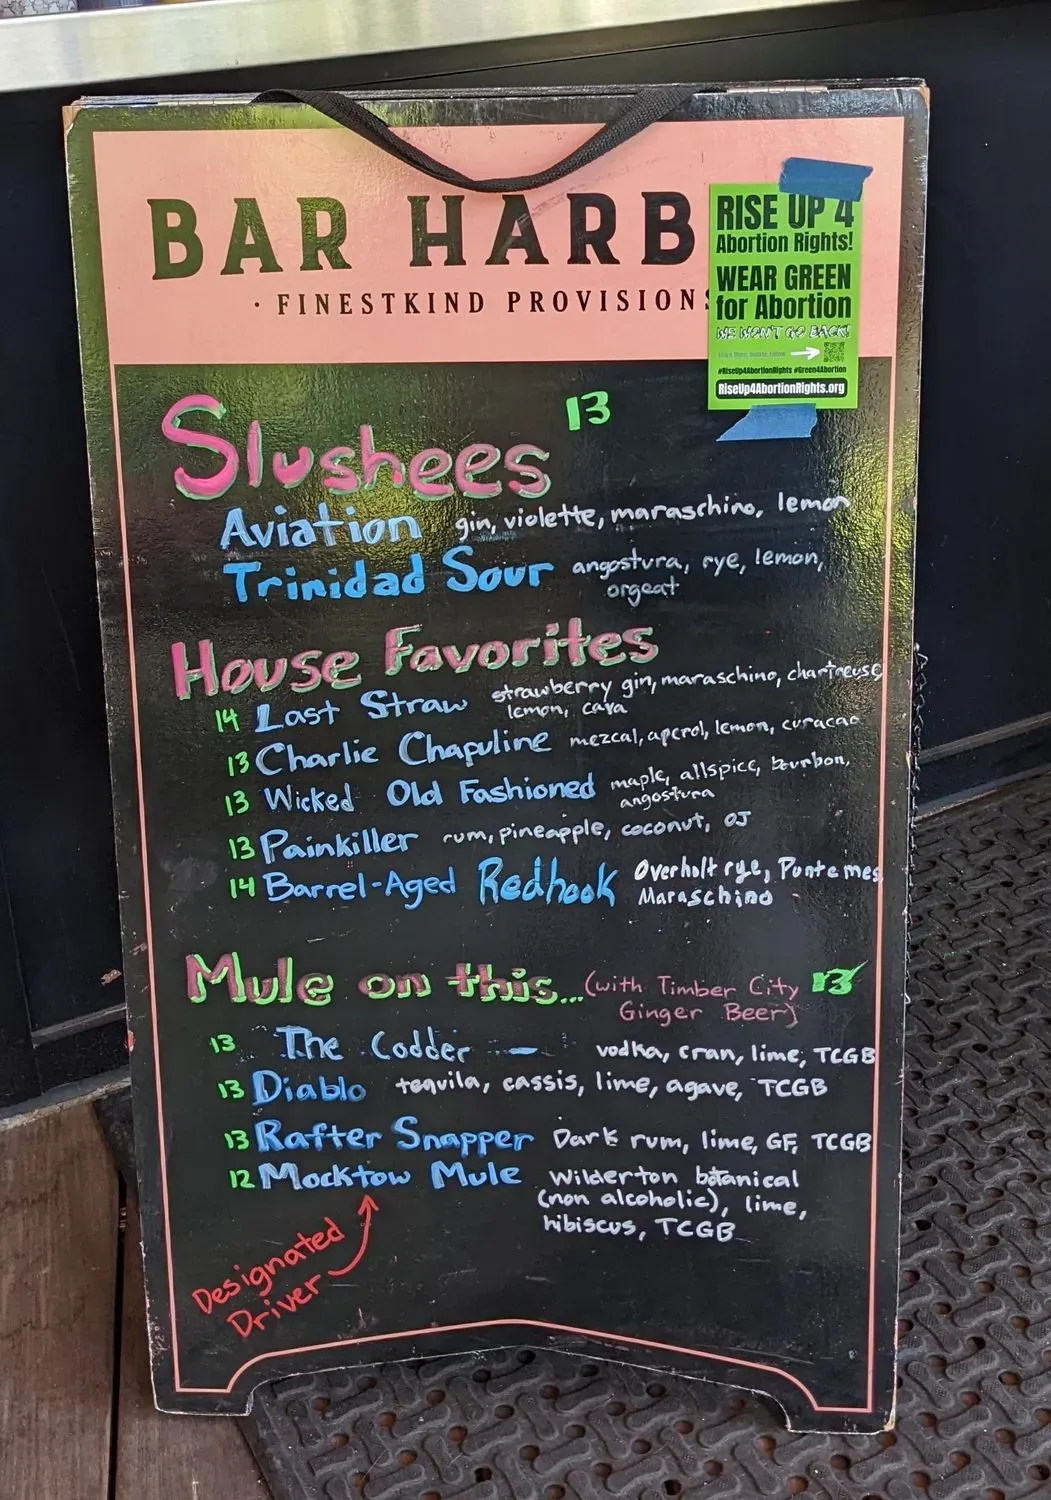 BAR HARB
· FINESTKIND PROVISIONS
RISE UP 4
Abortion Rights!
WEAR GREEN
for Abortion
WE WON'T GO BACK!
#RiseUp4AbortionRights #Green4Abortion
RiseUp4AbortionRights.org
Slushees 13
Aviation gin, violette, maraschino, lemon
Trinidad Sour angostura, rye, lemon,
orgeat
House Favorites
14 Last Straw strawberry gin, maraschino, chartreuse,
lemon, cava
13 Charlie Chapuline mezcal, aperol, lemon, curacao
13 Wicked Old Fashioned maple, allspice, bourbon,
angostura
13 Painkiller rum, pineapple, coconut, OJ
14 Barrel-Aged Redhook Overholt rye, Punt e mes,
Maraschino
Mule on this... (with Timber City 13
Ginger Beer)
13 The Codder — vodka, cran, lime, TCGB
13 Diablo tequila, cassis, lime, agave, TCGB
13 Rafter Snapper Dark rum, lime, GF, TCGB
12 Mocktow Mule Wilderton botanical
(non alcoholic), lime,
hibiscus, TCGB
Designated
Driver